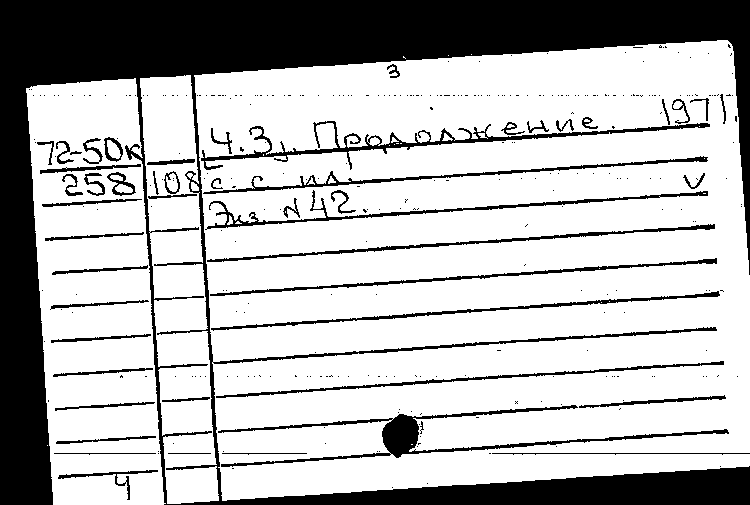 3
72-50к [Ч.3]. Продолжение. 1971.
258 108 с. с ил. V
Экз. N42.
Ч